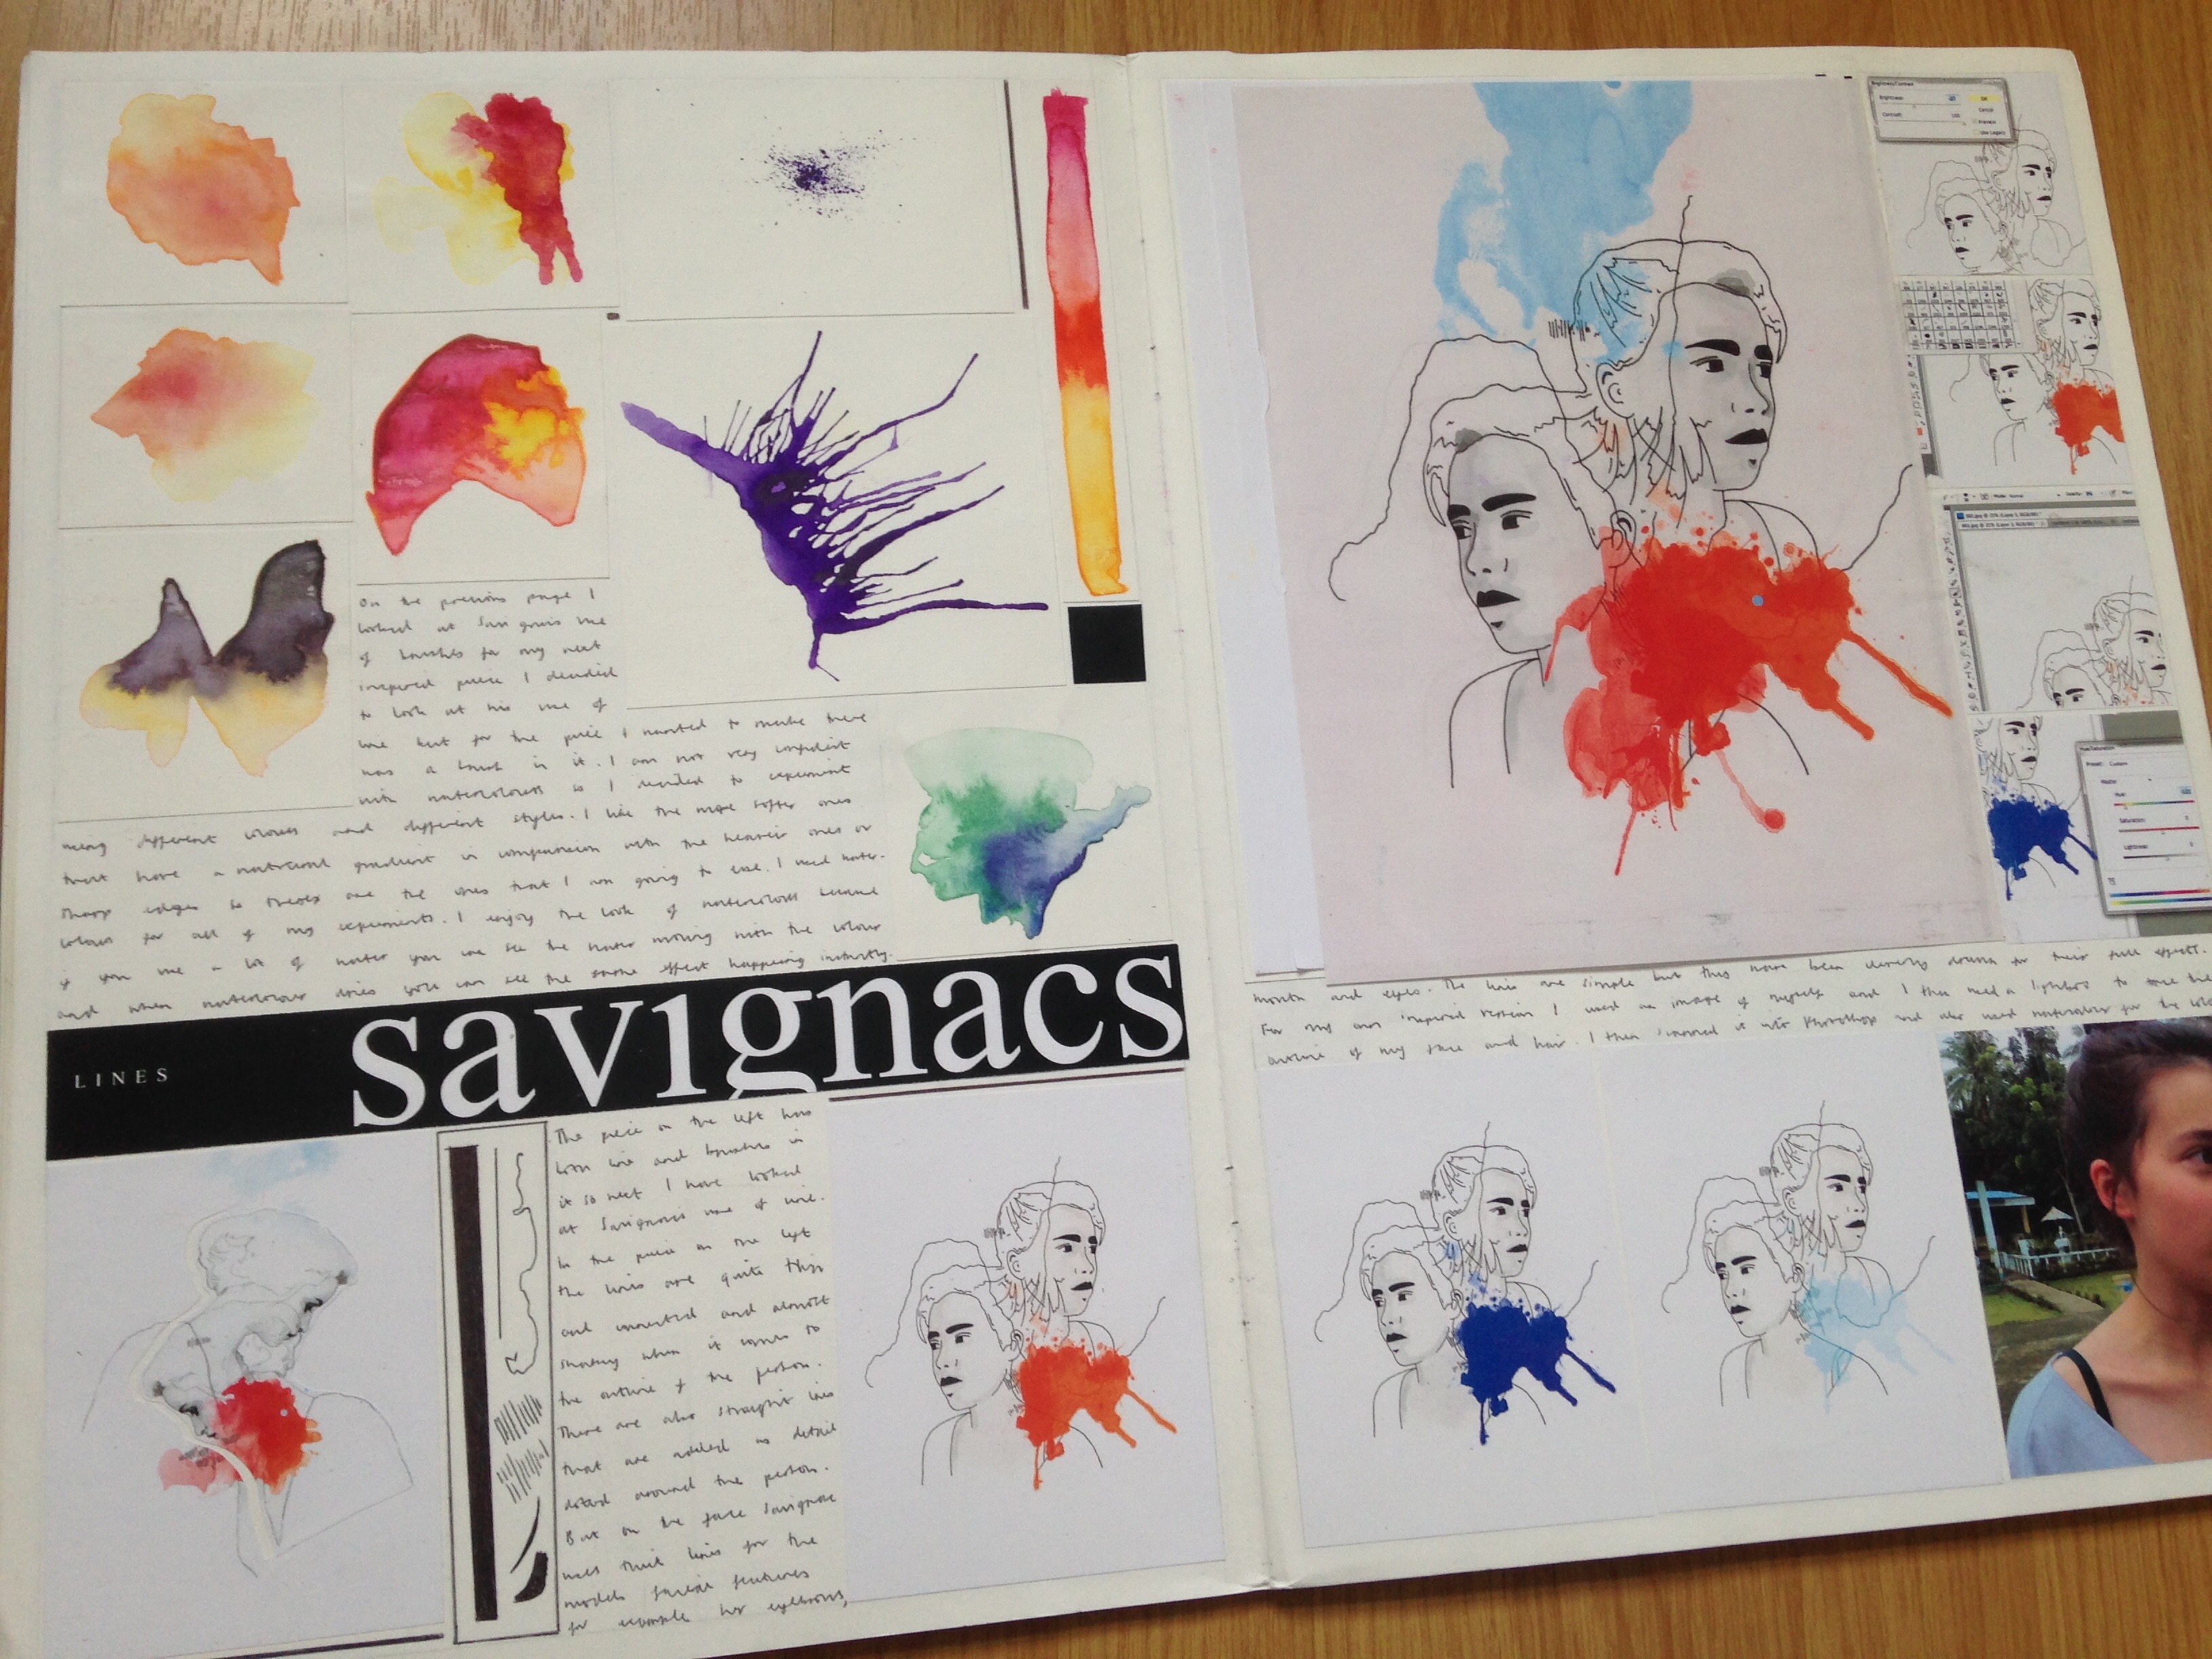 On the previous page I
looked at Savignacs use
of brushes for my next
inspired piece I decided
to look at his use of
line but for the piece I wanted to make there
was a brush in it. I am not very confident
with watercolours so I decided to experiment
using different colours and different styles. I like the more softer ones
that have a natural gradient in comparison with the heavier ones or
sharp edges so these are the ones that I am going to use. I used water-
colours for all of my experiments. I enjoy the look of watercolours because
if you use a lot of water you can see the water moving with the colour
and when watercolour dries you can see the same effect happening instantly.
LINES
savignacs
The piece on the left has
both line and brushes in
it so next I have looked
at Savignacs use of line.
In the piece on the left
the lines are quite thin
and and almost
when it comes to
the outline of the person.
There are also straight lines
that are added as detail
dotted around the person.
But on the face Savignac
uses thick lines for the
models facial features
for example her eyebrows,
mouth and eyes. The lines are simple but this have been cleverly drawn for their full effect.
For my own inspired version I used an image of myself and I then used a lightbox to trace the
outline of my face and hair. I then scanned it into Photoshop and also used watercolour for the
Brightness/Contrast
Brightness:
Contrast:
OK
Cancel
Preview
Use Legacy
Hue/Saturation
Preset: Custom
Master
Hue:
Saturation:
Lightness: